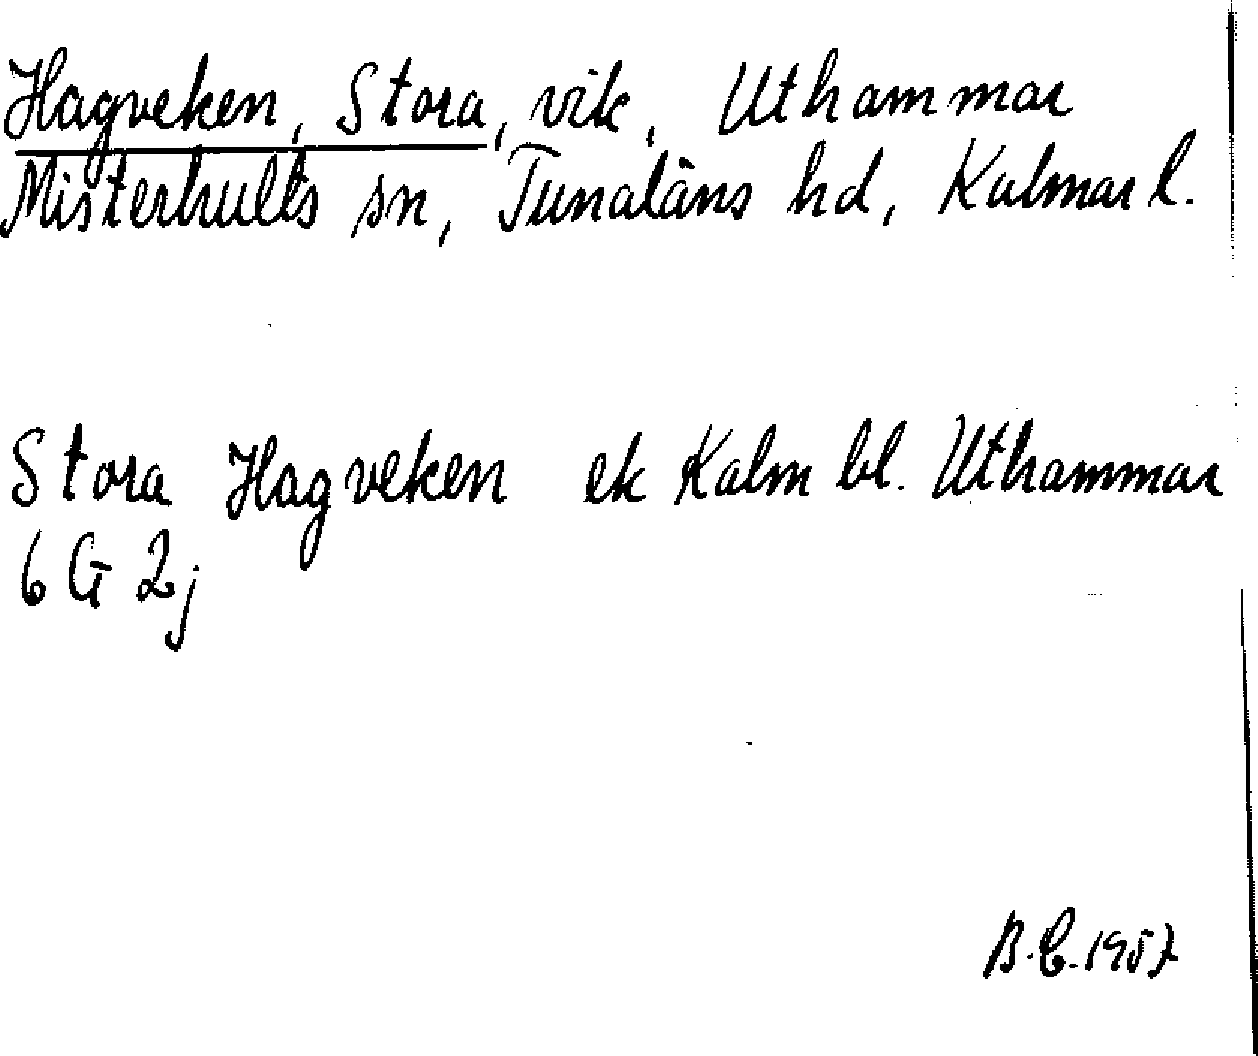 Hagveken, Stora, vik, Uthammar
Misterhults sn, Tunaläns hd, Kalmar l.
Stora Hagveken ek Kalm bl. Uthammar
6 G 2j
B.C. 1957